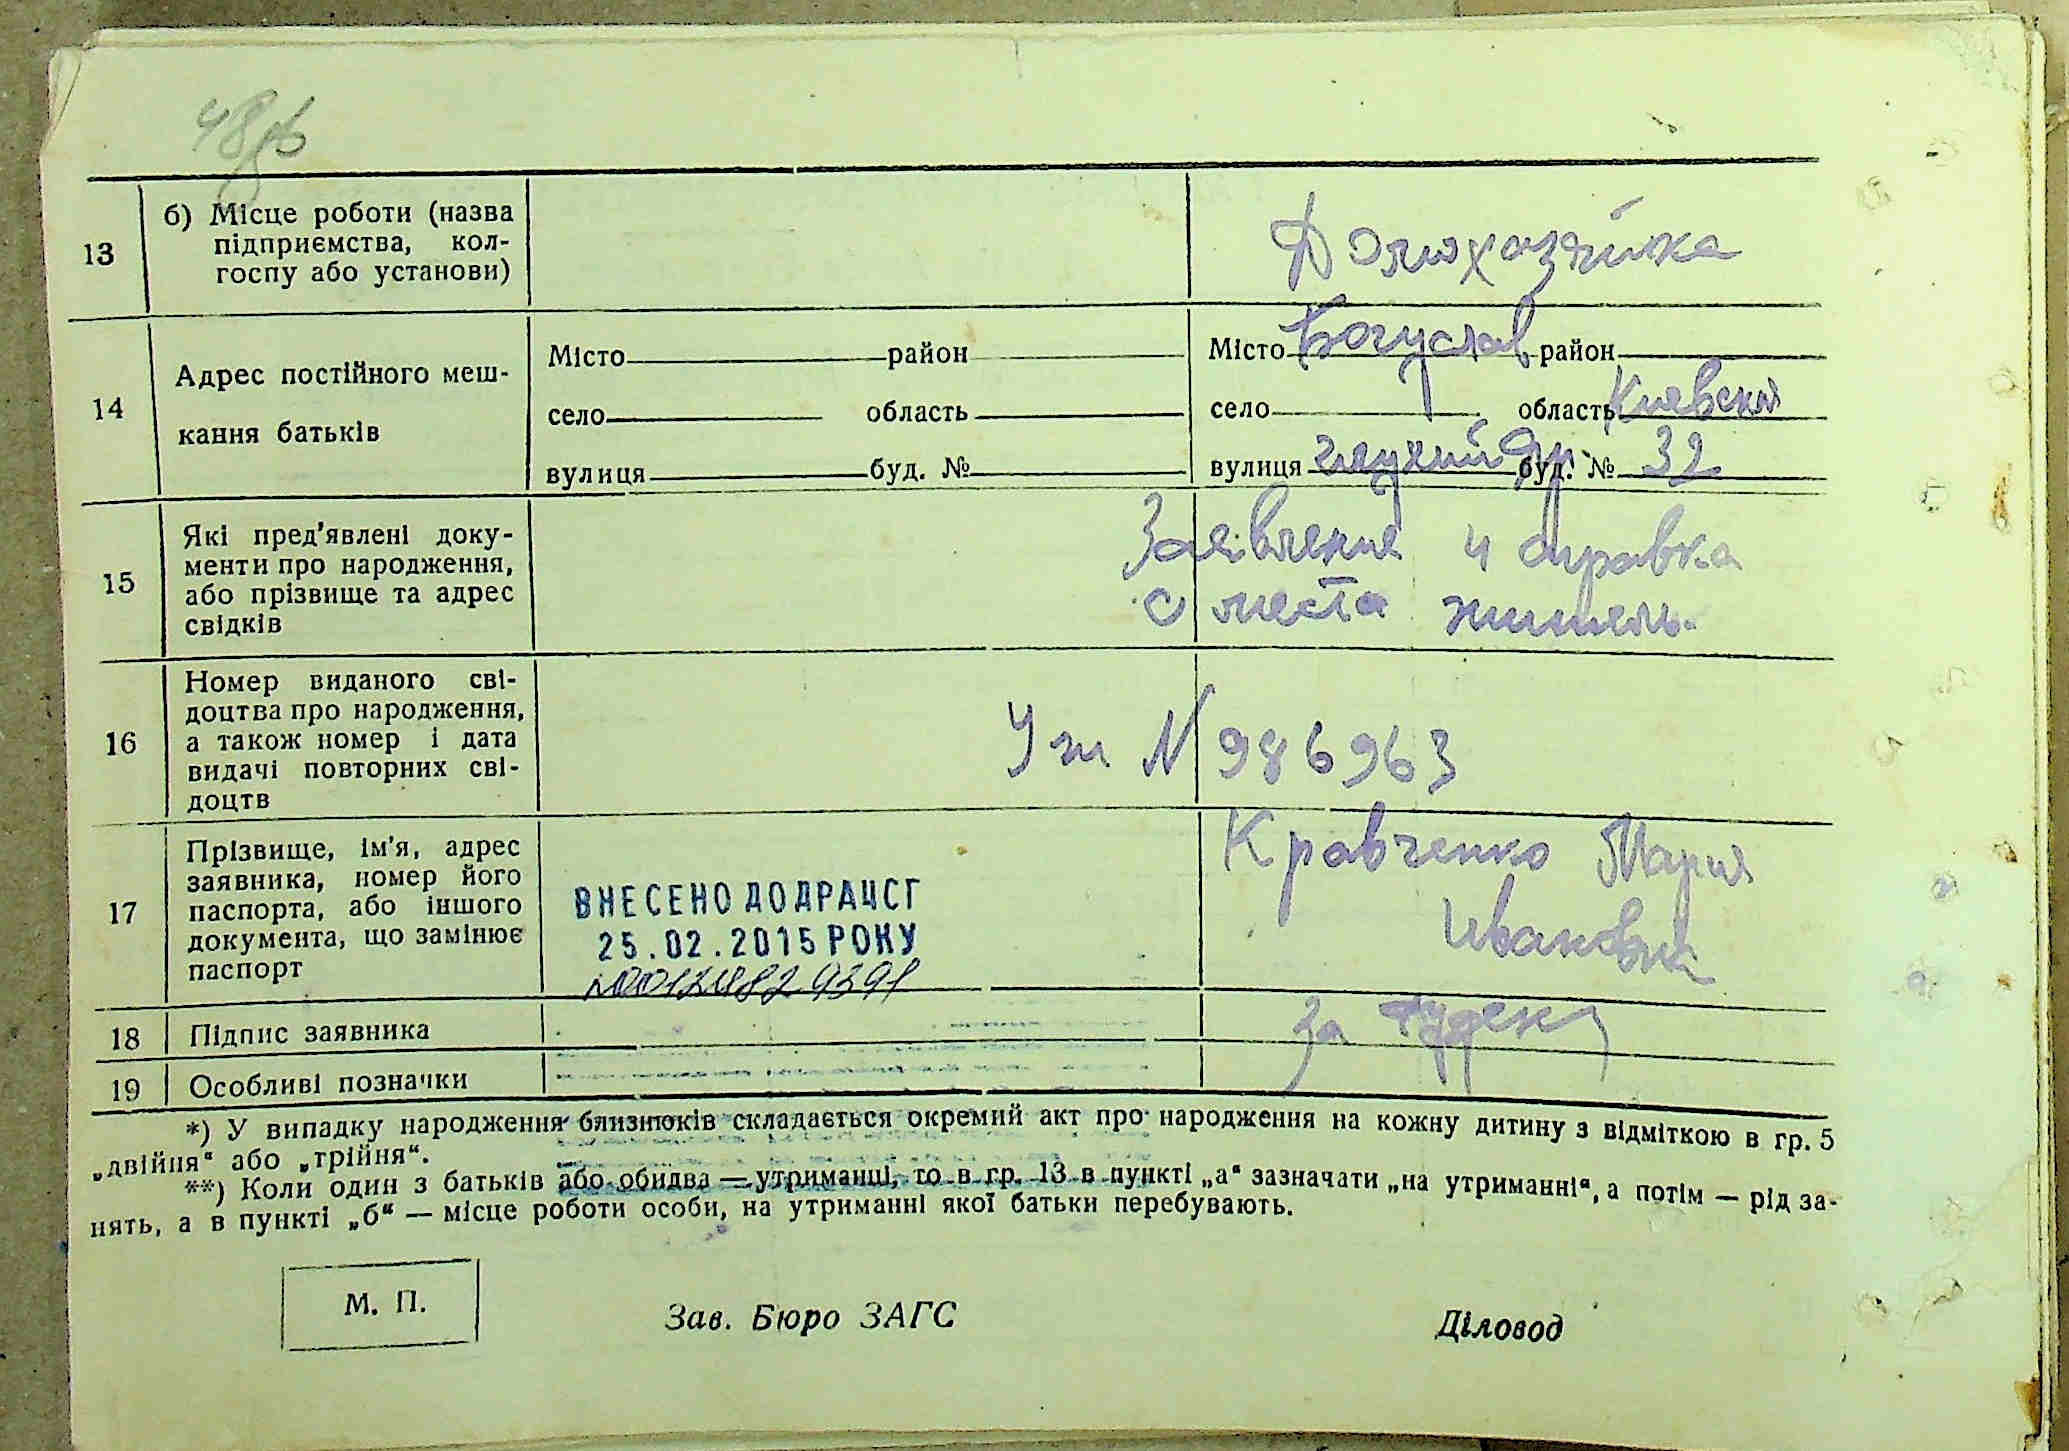 48
13 б) Місце роботи (назва
підприємства, кол-
госпу або установи)
Домохозяйка
14 Адрес постійного меш-
кання батьків
Місто район
село область
вулиця буд. №
Місто Богуслав район
село область Киевская
вулиця буд. № 32
15 Які пред'явлені доку-
менти про народження,
або прізвище та адрес
свідків
Заявление и справка
с места житель.
16 Номер виданого сві-
доцтва про народження,
а також номер і дата
видачі повторних сві-
доцтв
N 986963
17 Прізвище, ім'я, адрес
заявника, номер його
паспорта, або іншого
документа, що замінює
паспорт
ВНЕСЕНО ДО ДРАЦСГ
25.02.2015 РОКУ
Кравченко Мария
Ивановна
18 Підпис заявника
за
19 Особливі позначки
*) У випадку народження близнюків складається окремий акт про народження на кожну дитину з відміткою в гр. 5
„двійня“ або „трійня“.
**) Коли один з батьків або обидва — утриманці, то в гр. 13 в пункті „а“ зазначати „на утриманні“, а потім — рід за-
нять, а в пункті „б“ — місце роботи особи, на утриманні якої батьки перебувають.
М. П.
Зав. Бюро ЗАГС
Діловод